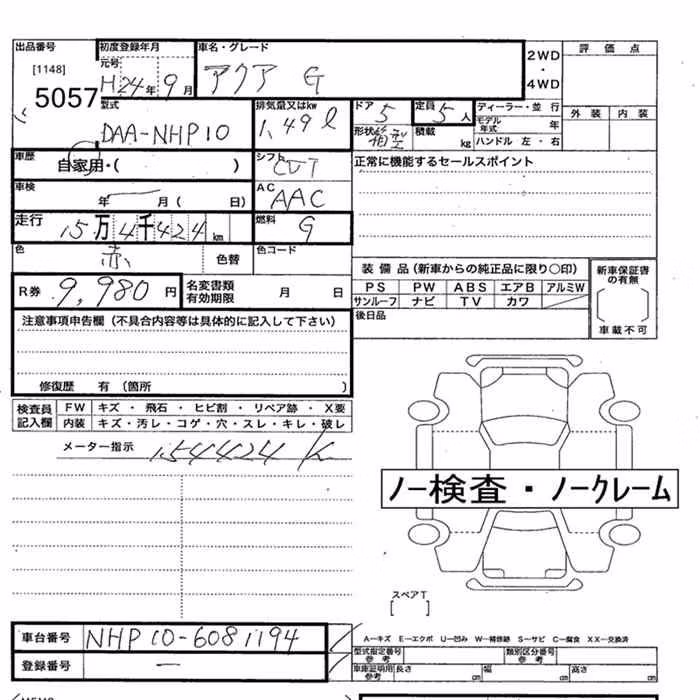 出品番号 初度登録年月 車名・グレード 2WD・4WD 評価点
[1148] 元号 アクア G
5057 H24年9月 外装 内装
型式 排気量又はkw ドア 5 定員 5人 ディーラー・並行
DAA-NHP10 1,49ℓ 形状 箱型 積載 kg モデル年式 年
ハンドル 左・右
車歴 自家用・( ) シフト CVT 正常に機能するセールスポイント
車検 年 月( 日) AC AAC
走行 15万4千424km 燃料 G
色 赤 色替 色コード
装備品(新車からの純正品に限り○印) 新車保証書の有無
R券 9,980円 名変書類有効期限 月 日 PS PW ABS エアB アルミW
サンルーフ ナビ TV カワ
後日品 車載不可
注意事項申告欄(不具合内容等は具体的に記入して下さい)
修復歴 有(箇所 )
検査員記入欄 FW キズ・飛石・ヒビ割・リペア跡・X要
内装 キズ・汚レ・コゲ・穴・スレ・キレ・破レ
メーター指示 154424 K
ノー検査・ノークレーム
スペアT
[ ]
車台番号 NHP10-6081194 A—キズ E—エクボ U—凹み W—補修跡 S—サビ C—腐食 XX—交換済
登録番号 — 型式指定番号 参考 類別区分番号 参考
車庫証明用参考 長さ cm 幅 cm 高さ cm